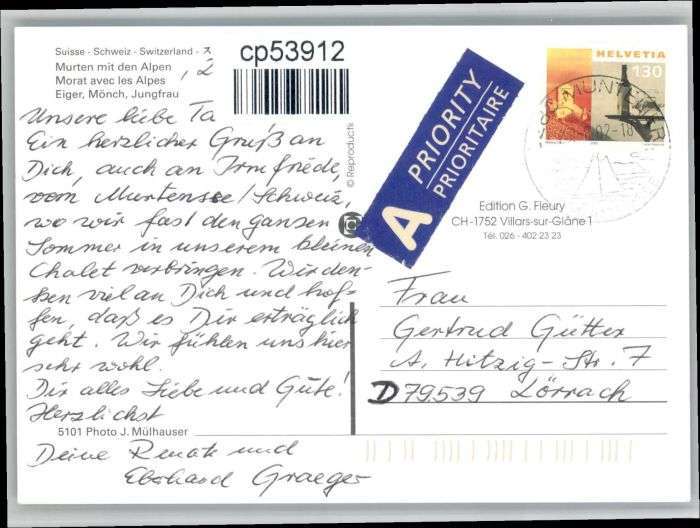 Suisse - Schweiz - Switzerland -
Murten mit den Alpen
Morat avec les Alpes
Eiger, Mönch, Jungfrau
cp53912
HELVETIA
130
A PRIORITY
PRIORITAIRE
© Reproducts
Edition G. Fleury
CH-1752 Villars-sur-Glâne 1
Tél. 026 - 402 23 23
Unsere liebe Ta
Ein herzlicher Gruß an
Dich, auch an Irmfriede,
vom Murtensee/Schweiz,
wo wir fast den ganzen
Sommer in unserem kleinen
Chalet verbringen. Wir den-
ken viel an Dich und hof-
fen, daß es Dir erträglich
geht. Wir fühlen uns hier
sehr wohl.
Dir alles Liebe und Gute!
Herzlichst
5101 Photo J. Mülhauser
Deine Renate und
Eberhard Graeger
Frau
Gertrud Gütter
A. Hitzig-Str. 7
D 79539 Lörrach